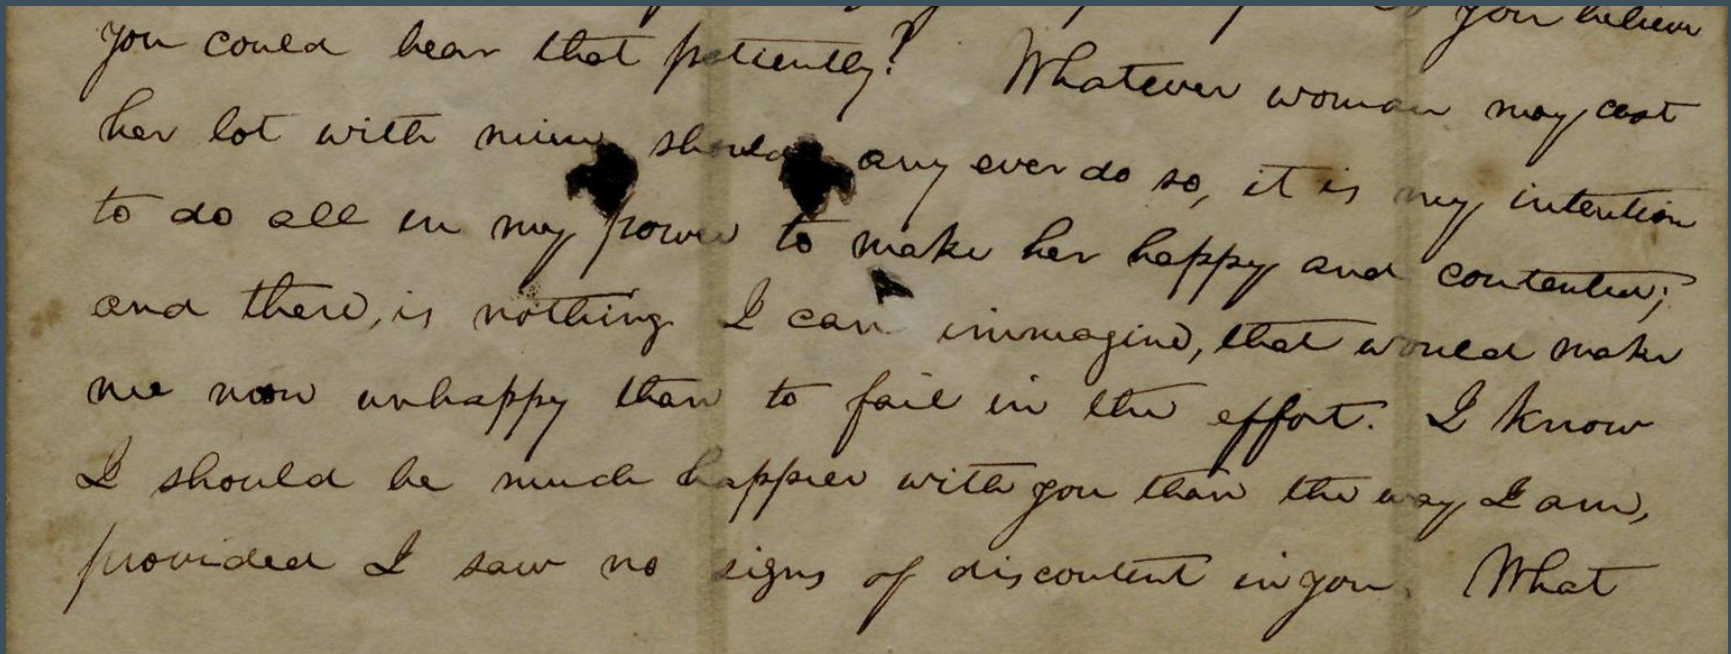 you believe
you could bear that patiently? Whatever woman may cast
her lot with mine, should any ever do so, it is my intention
to do all in my power to make her happy and contented;
and there, is nothing I can immagine, that would make
me more unhappy than to fail in the effort. I know
I should be much happier with you than the way I am,
provided I saw no signs of discontent in you. What